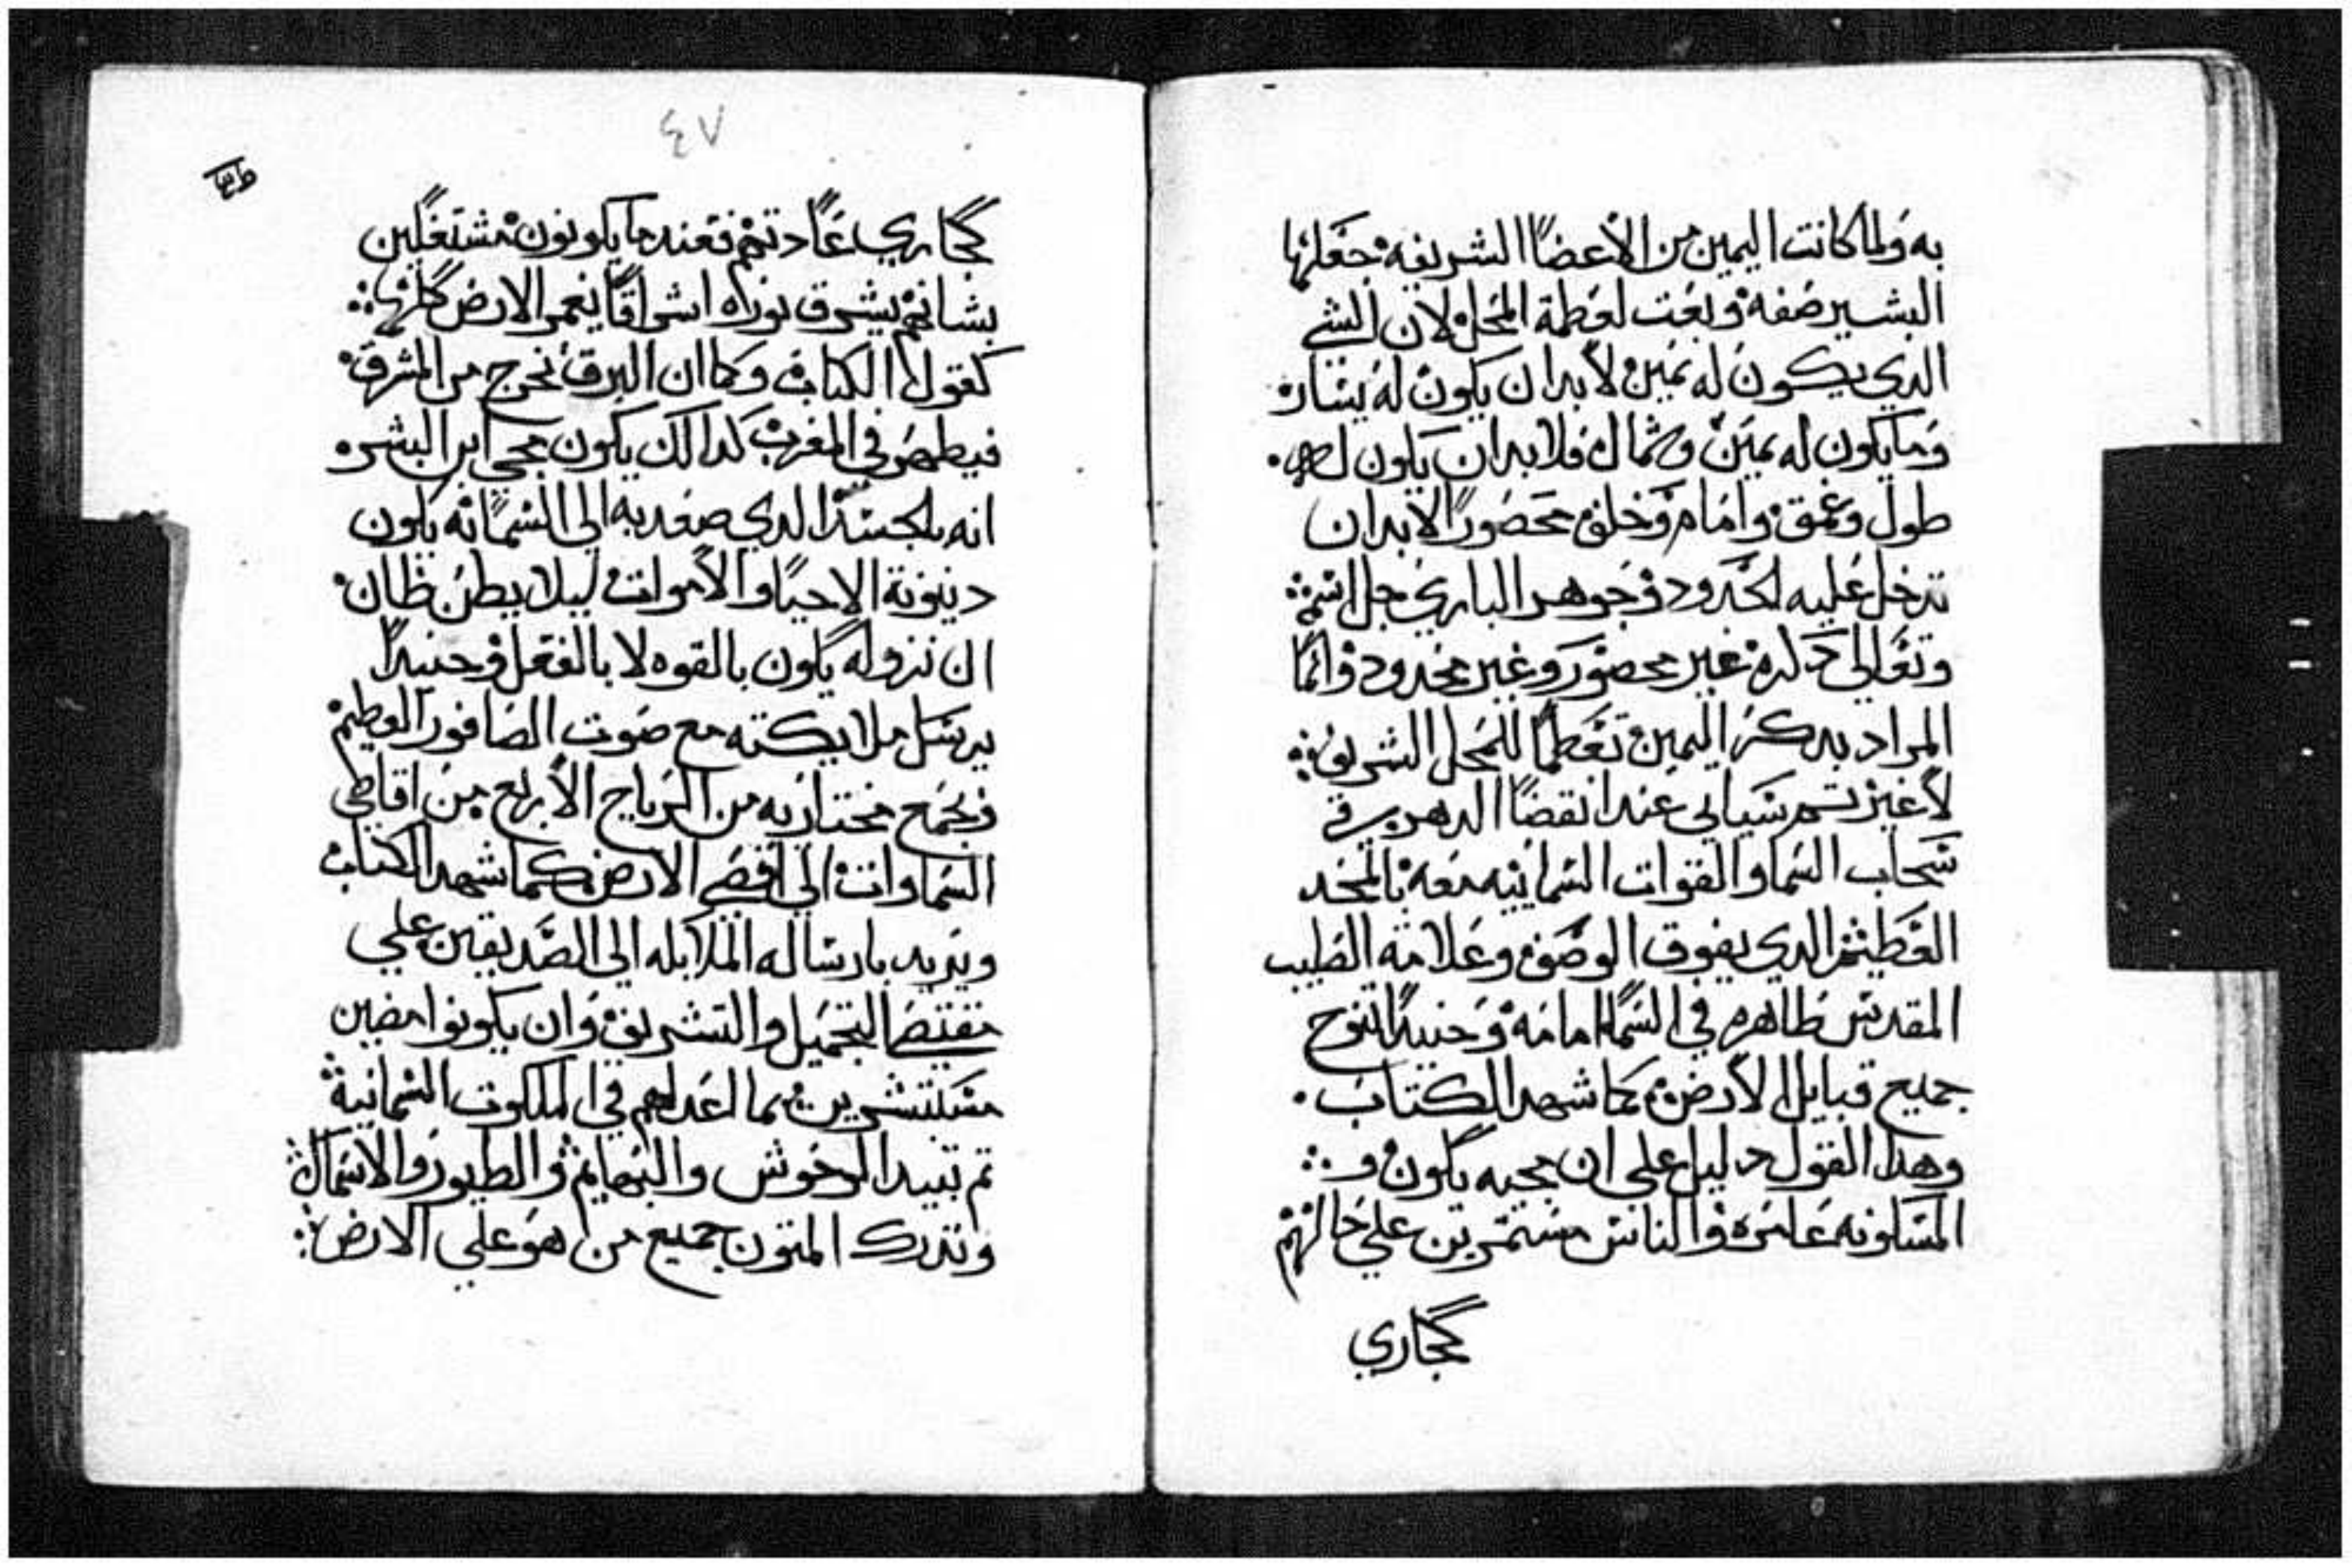 به ولما كانت اليمين من الأعضا الشريفه جعلها
البشير صفه ونعت لعظمة المحل لان الشي
الدي يكون له يمين لابد ان يكون له يسار
وما يكون له يمين وشمال فلابد ان يكون له
طول وعمق وامام وخلف محصورا لابد ان
تدخل عليه الحدود وجوهر الباري جل اسمه
وتعالي دكره غير محصور وغير محدود وانما
المراد بدكر اليمين تعظيما للمحل الشريف
لاغير تم سياتي عند انقضا الدهر في
سحاب السما والقوات السماييه معه بالمجد
العظيم الدي يفوق الوصف وعلامة الصليب
المقدس ظاهره في السما امامه وحنيدا تنوح
جميع قبايل الأرض كما شهد الكتاب
وهدا القول دليل علي ان مجيه يكون و
المسكونه عامره والناس مستمرين علي حالهم
كجاري
٤٧
كجاري عادتهم فعند ما يكونون مشتغلين
بشانهم يشرق نوره اشراقا يعم الارض كلها
كقول الكتاب وكما ان البرق يخرج من المشرق
فيظهر في المغرب كدالك يكون مجي ابن البشر
انه بالجسد الدي صعد به الي السما انه يكون
دينونة الاحيا والأموات ليلا يظن ظان
ان نزوله يكون بالقوه لا بالفعل وحنيدا
يرسل ملايكته مع صوت الصافور العظيم
فيجمع مختاريه من الرياح الأربع من اقاصي
السماوات الي اقصي الارض كما شهد الكتاب
ويريد بارساله الملايكه الي الصديقين علي
مقتضا التجميل والتشريف وان يكونوا مضيين
مستبشرين بما اعد لهم في الملكوت السمانية
تم تبيد الوحوش والبهايم والطيور والاسماك
وتدرك المتون جميع من هو علي الارض